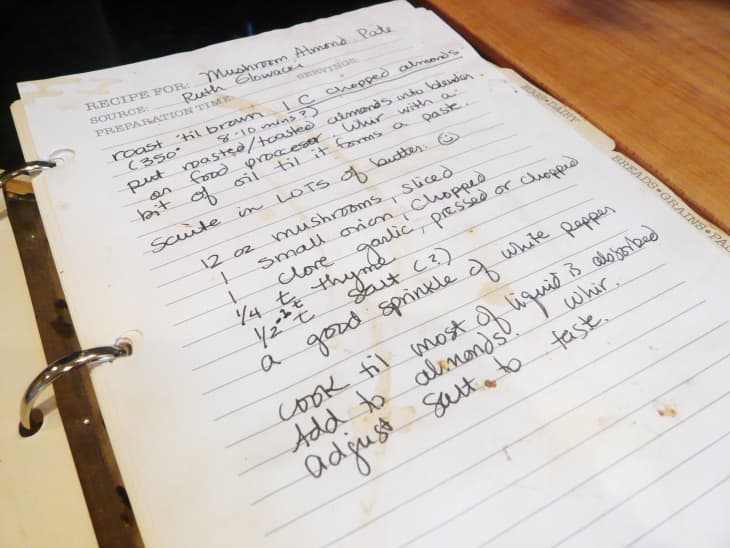 RECIPE FOR: Mushroom Almond Pate
SOURCE: Ruth Glowacki SERVINGS:
PREPARATION TIME:
roast 'til brown 1 C chopped almonds
(350° 8-10 mins?)
Put roasted/toasted almonds into blender
or food processer. Whir with a
bit of oil til it forms a paste.
Saute in LOTS of butter: ☺
12 oz mushrooms, sliced
1 small onion, chopped
1 clove garlic, pressed or chopped
1/4 t thyme
1/2 t salt (?)
a good sprinkle of white pepper
cook til most of liquid is absorbed
Add to almonds. Whir.
adjust salt to taste.
EGGS•DAIRY
BREADS•GRAINS•PA